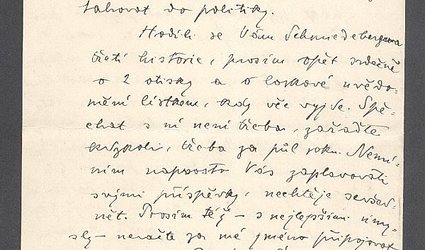 tahovat do politiky.
Hodili se Vám Schmiedebergova
třetí historie, prosím opět srdečně
o 2 otisky a o laskavé uvědo-
mění lístkem, kdy vše vyjde. Spě-
chat s ní není třeba, zařaďte
kdykoli, třeba za půl roku. Nemí-
ním naprosto Vás zaplavovati
svými příspěvky, nechtěje
nét. Prosím též – s nejlepšími úmy-
sly – neračte za mé jméno připojovat